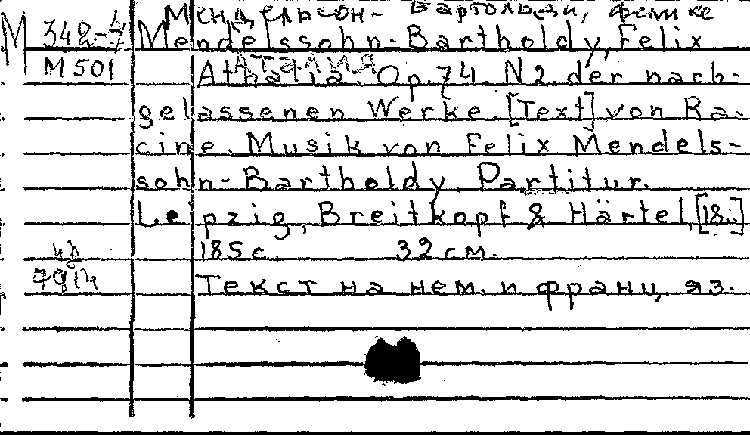 Мендельсон-Бартольди, Феликс
М 342-4/7 Mendelssohn-Bartholdy, Felix
Аталия
М 501 Athalia. Op. 74. N2 der nach-
gelassenen Werke. [Text] von Ra-
cine. Musik von Felix Mendels-
sohn-Bartholdy. Partitur.
Leipzig, Breitkopf & Härtel, [18..]
185 с. 32 см.
Текст на нем. и франц. яз.